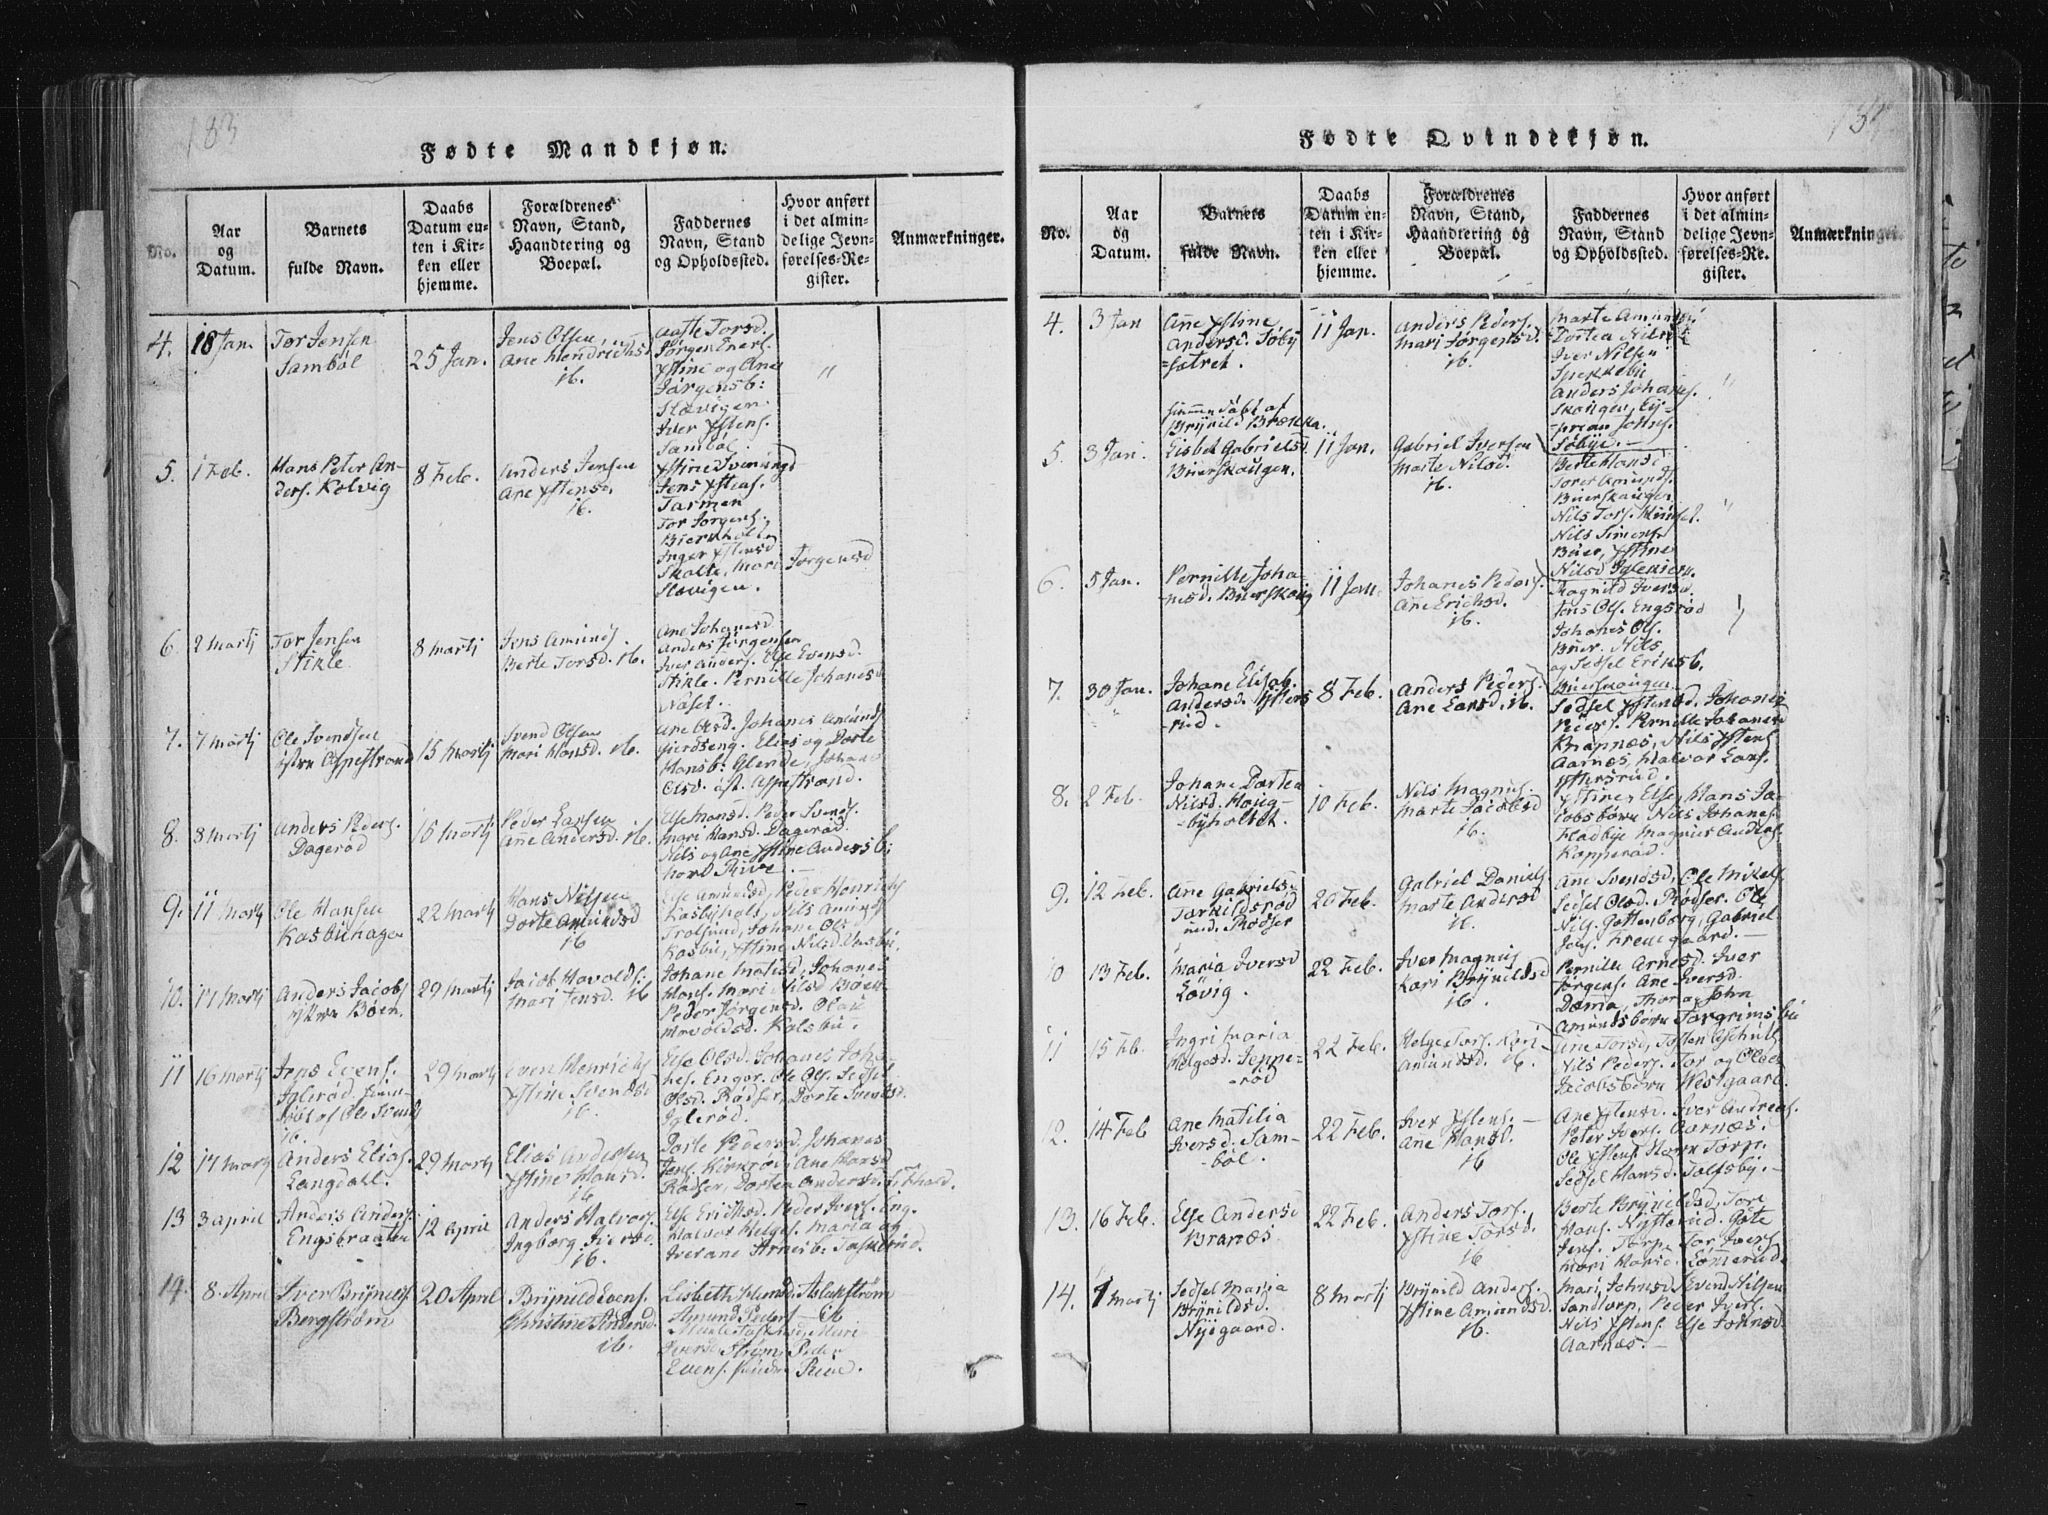 183
Fødte Mandkjøn.
No.
Aar
og
Datum.
Barnets
fulde Navn.
Daabs
Datum en-
ten i Kir-
ken eller
hjemme.
Forældrenes
Navn, Stand,
Haandtering og
Boepæl.
Faddernes
Navn, Stand
og Opholdssted.
Hvor anført
i det almin-
delige Jevn-
førelses-Re-
gister.
Anmærkninger.
4.
18 Jan.
Tor Jensen
Sambøl
25 Jan.
Jens Olsen,
Ane Hendrichsd
ib.
Aaste Torsd.
Jørgen Eners.
Xstine og Ane
Jørgensb:
Slævigen
Iver Xstens.
Sambøl.
"
5.
1 Feb.
Hans Peter An-
ders. Kolvig
8 Feb.
Anders Jensen
Ane Xstensd.
ib.
Xstine Svenungd
Jens Xstens.
Tasmen
Tor Jørgens.
Bierkholt
Inger Xstensd
Skolte, Mari Jørgensd
Slævigen.
6.
2 Martj
Tor Jensen
Stikle
8 Martj
Jens Amunds.
Berte Torsd. ib.
Ane Johanesd
Anders Jørgensen
Iver Anders. Else Evensd.
Stikle. Pernille Johanesd
Naset.
7.
7 Martj
Ole Svendsen
østre Appestrand
15 Martj
Svend Olsen
Mari Hansd. ib.
Ane Olsd. Johanes Amunds
Gierdseng. Elias og Dorte
Hansb: Glende, Johane
Olsd. øst. Appestrand.
8.
8 Martj
Anders Peders.
Dagerød
16 Martj
Peder Larsen
Ane Andersd. ib.
Else Hansd. Peder Svends.
Mari Hansd. Dagerød.
Nils og Ane Xstine Andersb:
nord Rive.
9.
11 Martj
Ole Hansen
Kasbuhagen
22 Martj
Hans Nilsen
Dorte Amundsd
ib
Else Amundsd, Peder Henrichs
Kasbyhols, Nils Amunds
Trolsund, Johane Olsd
Kasbu, Xstine Nilsd Unsbu.
10.
17 Martj
Anders Jacobs
Ystre Bøen.
29 Martj
Jacob Havolds.
Mari Jensd. ib
Johane Matisd, Johanes
Hans. Mari Nilsd Bøen
Peder Jørgensd. Olau
Havoldsd. Kalsbu.
11
16 Martj
Jens Evens.
Iglerød
døbt af Ole Svends
ib.
29 Martj
Even Henrichs
Xstine Svendsd
ib.
Else Olsd. Johanes Joha-
nes. Enger. Ole Ols. Sedsel
Olsd. Rødser, Dorte Svendsd.
Iglerød.
12
17 Martj
Anders Elias.
Langdall.
29 Martj
Elias Andersen
Xstine Hansd.
ib
Dorte Pedersd. Johanes
Jens. Kirkrøe, Ane Hansd
Rødser, Dortea Andersd.
13
3 April
Anders Anders.
Engsbraaten
12 April
Anders Halvors.
Ingborg Iversd.
ib.
Else Erichsd. Peder Ivers. Eng.
Halvor Helges. Maria og
14.
8. April
Iver Brynilds.
Bergstrøm
20 April
Brynild Evens.
Christine Andersd.
ib.
Lisbeth Aslakstrøm
Amund Peders ib
Mari
Iversd. Strøm, Peder
Evens. søndre Rive.
Fødte Qvindekjøn.
No.
Aar
og
Datum.
Barnets
fulde Navn.
Daabs
Datum en-
ten i Kir-
ken eller
hjemme.
Forældrenes
Navn, Stand,
Haandtering og
Boepæl.
Faddernes
Navn, Stand
og Opholdssted.
Hvor anført
i det almin-
delige Jevn-
førelses-Re-
gister.
Anmærkninger
4.
3 Jan
Ane Xstine
Andersd. Søby
-sætret.
11 Jan.
Anders Peders.
Mari Jørgensd.
ib.
Marte Amunds.
Dortea Nilsd.
Iver Nilsen
Spekkebu
Anders Johanes.
Skougen, Cy-
prean Johns.
Søbye.
"
5.
3 Jan.
hiemmedøbt af
Brynild Brækka.
Lisbet Gabrielsd.
Buerskougen.
11 Jan.
Gabriel Iversen
Marte Nilsd.
ib.
Berte Hansd.
Torer Amunds.
Buerskougen
Nils Tors. Hunsel.
Nils Simens.
Buer, Xstine
Nilsd Iglekiern.
"
6.
5 Jan.
Pernille Joha-
-nesd. Buerskoug
11 Jan.
Johanes Peders.
Ane Erichsd.
ib.
Ragnild Iversd.
Jens Ols. Engsrød
Johanes Ols.
Buer. Nils
og Sedsel Eriksb.
Buerskougen.
"
7.
30 Jan.
Johane Elisab.
Andersd. Ysters
-rud.
8 Feb.
Anders Peders.
Ane Larsd. ib.
Sedsel Xstensd. Johanes
Peders. Pernille Johanesd
Krapnæs, Nils Xstens
Aarnæs, Halvor Lars.
Ystersrud.
8.
2 Feb
Johane Dortea
Nilsd. Houg-
-byholtet.
10 Feb.
Nils Magnus.
Marte Jacobsd
ib.
Xstine, Else, Hans Ja-
cobsbørn Nils Johanes.
Fladbye Magnus Andreas.
Kopperød.
9.
12 Feb.
Ane Gabrielsd
Tarkildsrød
und. Rødser
20 Feb.
Gabriel Daniels
Marte Andersd
ib.
Ane Svendsd, Ole Mikels
Sedsel Olsd. Rødser. Ole
Nils. Gottenborg, Gabriel
Jons. Fredegaard.
10
13 Feb.
Maria Iversd
Løvig.
22 Feb.
Iver Magnus
Kari Brynildsd
ib.
Pernille Arnesd. Iver
Jørgens. Ane Iversd.
Dæma, Thora, John
Amundsbørn Torgrimsbu
11
15 Feb.
Ingri Maria
Helgesd. Jenne-
-rød
22 Feb.
Helge Tors. Kari
Amundsd. ib.
Ane Torsd, Tosten Aschuls
Nils Peders. Tor og Olea
Jacobsbørn Westgaard.
12.
14 Feb
Ane Matilia
Iversd. Sam-
-bøl.
22 Feb.
Iver Xstens.
Ane Hansd.
ib
Ane Xstensd. Iver Andreas.
Peter Ivers. Aarnæs.
Ole Xstens. Store Torp.
Sedsel Hansd. Tolfsby.
13.
16 Feb.
Else Andersd
Branæs
22 Feb.
Anders Tors.
Xstine Torsd.
ib
Berte Brynildsd, Tore
Hans. Nysterud. Gote
Jens. Torp. Tor Ivers.
Mari Hansd. Lømmerud.
14.
1 Martj
Sedsel Maria
Brynildsd.
Nygaard.
8 Martj
Brynild Anders.
Xstine Amundsd.
ib.
Mari Johnsd Svend Nilsen
Sandtorp, Peder Ivers.
Nils Xstens. Else Johnsd.
Aarnæs.